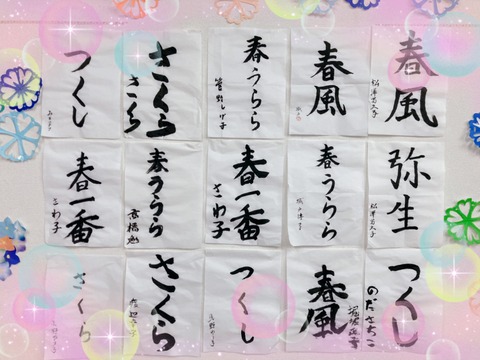 春風
春風
春うらら
さくら
さくら
つくし
弥生
春うらら
春一番
さわ子
春うらら
春一番
さわ子
つくし
のださちこ
春風
つくし
さくら
さくら